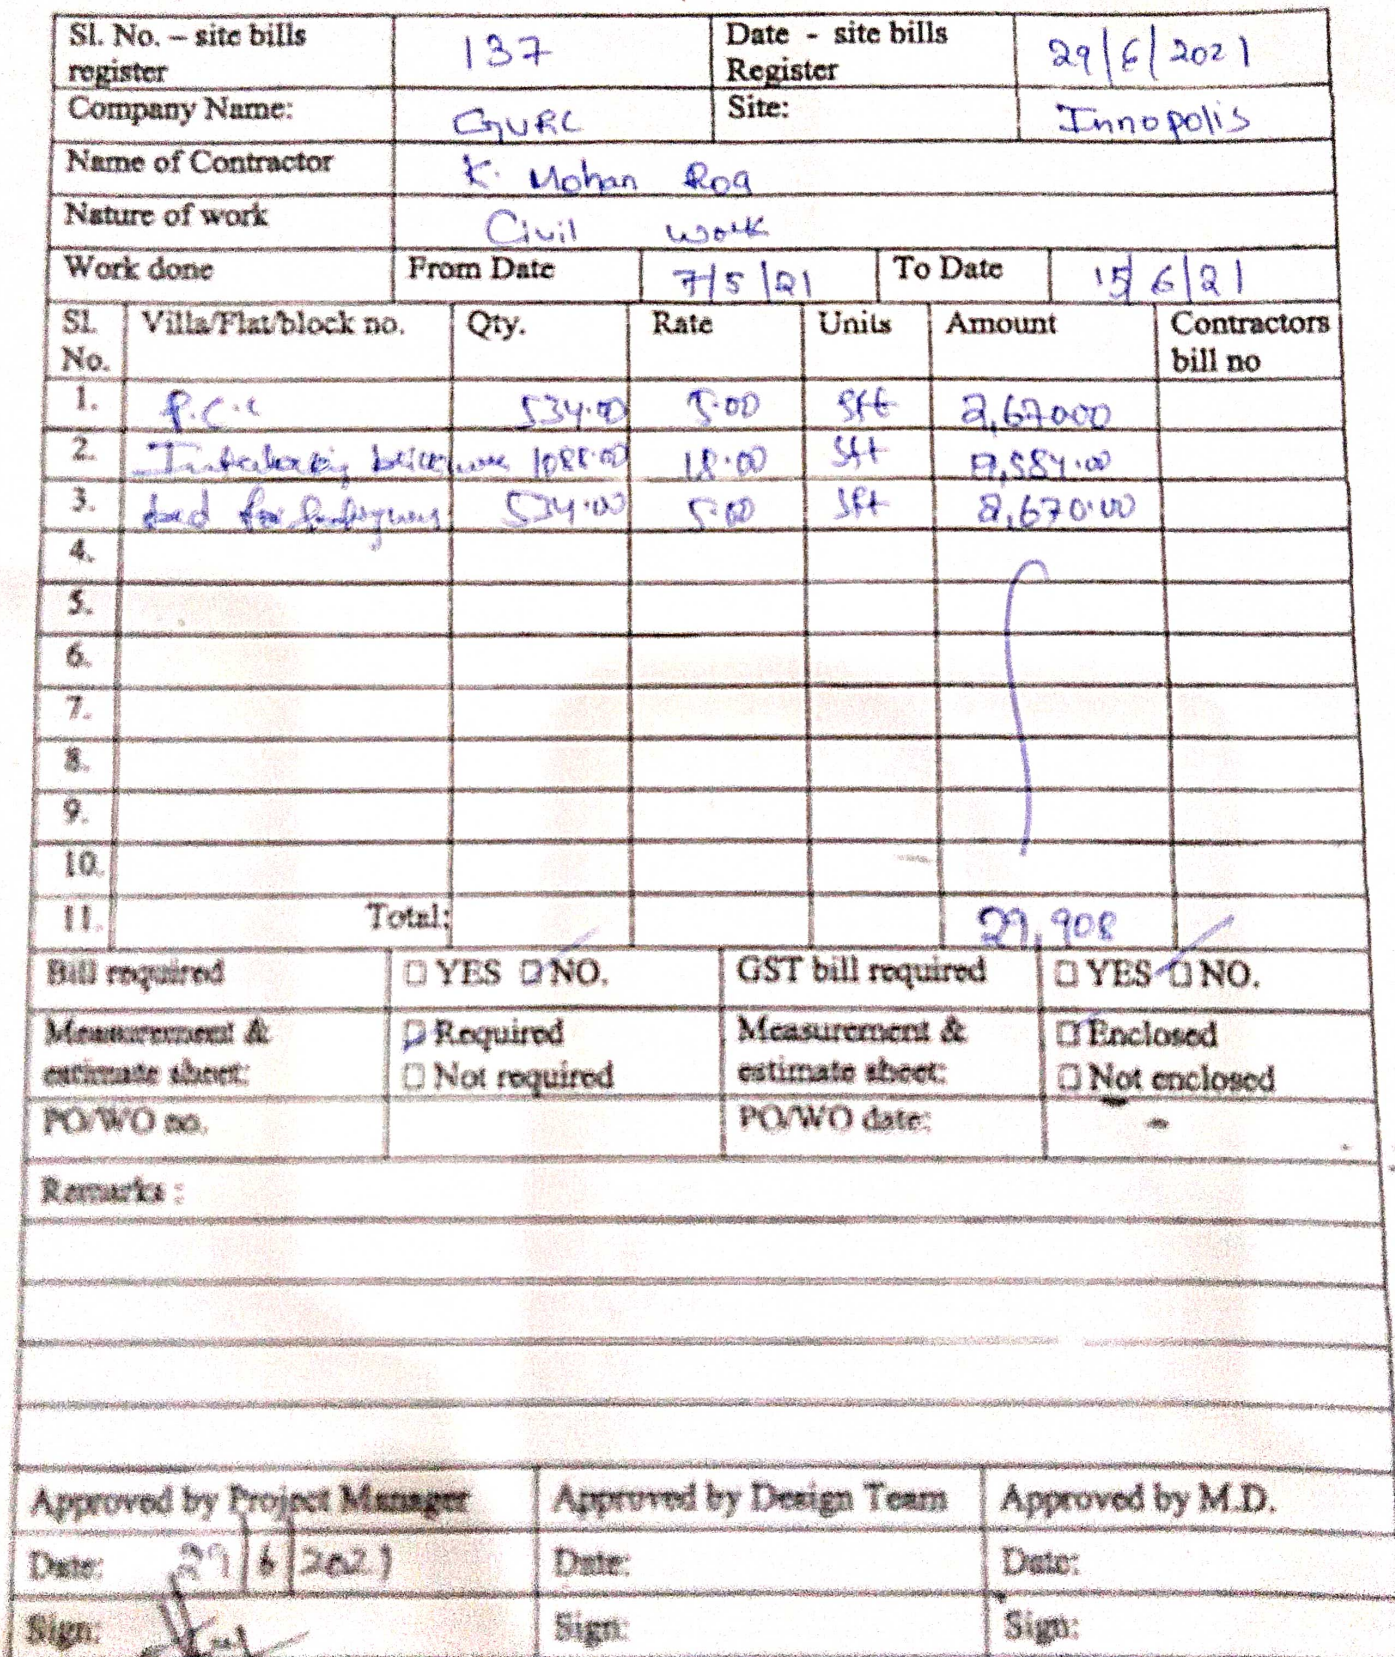 Sl. No. – site bills register 137 Date - site bills Register 29/6/2021
Company Name: GVRC Site: Innopolis
Name of Contractor K. Mohan Rog
Nature of work Civil work
Work done From Date 7/5/21 To Date 15/6/21
Sl. No. Villa/Flat/block no. Qty. Rate Units Amount Contractors bill no
1. P.C.C 534.00 5.00 Sft 2,67000
2. 18.00 Sft
3. for 534.00 5.00 Sft 2,670.00
4.
5.
6.
7.
8.
9.
10.
11. Total: 908
Bill required YES NO. GST bill required YES NO.
Measurement & estimate sheet: Required Not required Measurement & estimate sheet: Enclosed Not enclosed
PO/WO no. PO/WO date: -
Remarks :
Approved by Project Manager Approved by Design Team Approved by M.D.
Date: 29/6/2021 Date: Date:
Sign: Sign: Sign: